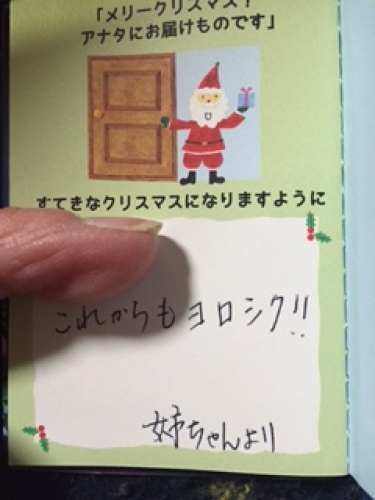 「メリークリスマス！
アナタにお届けものです」
すてきなクリスマスになりますように
これからもヨロシク!!
姉ちゃんより